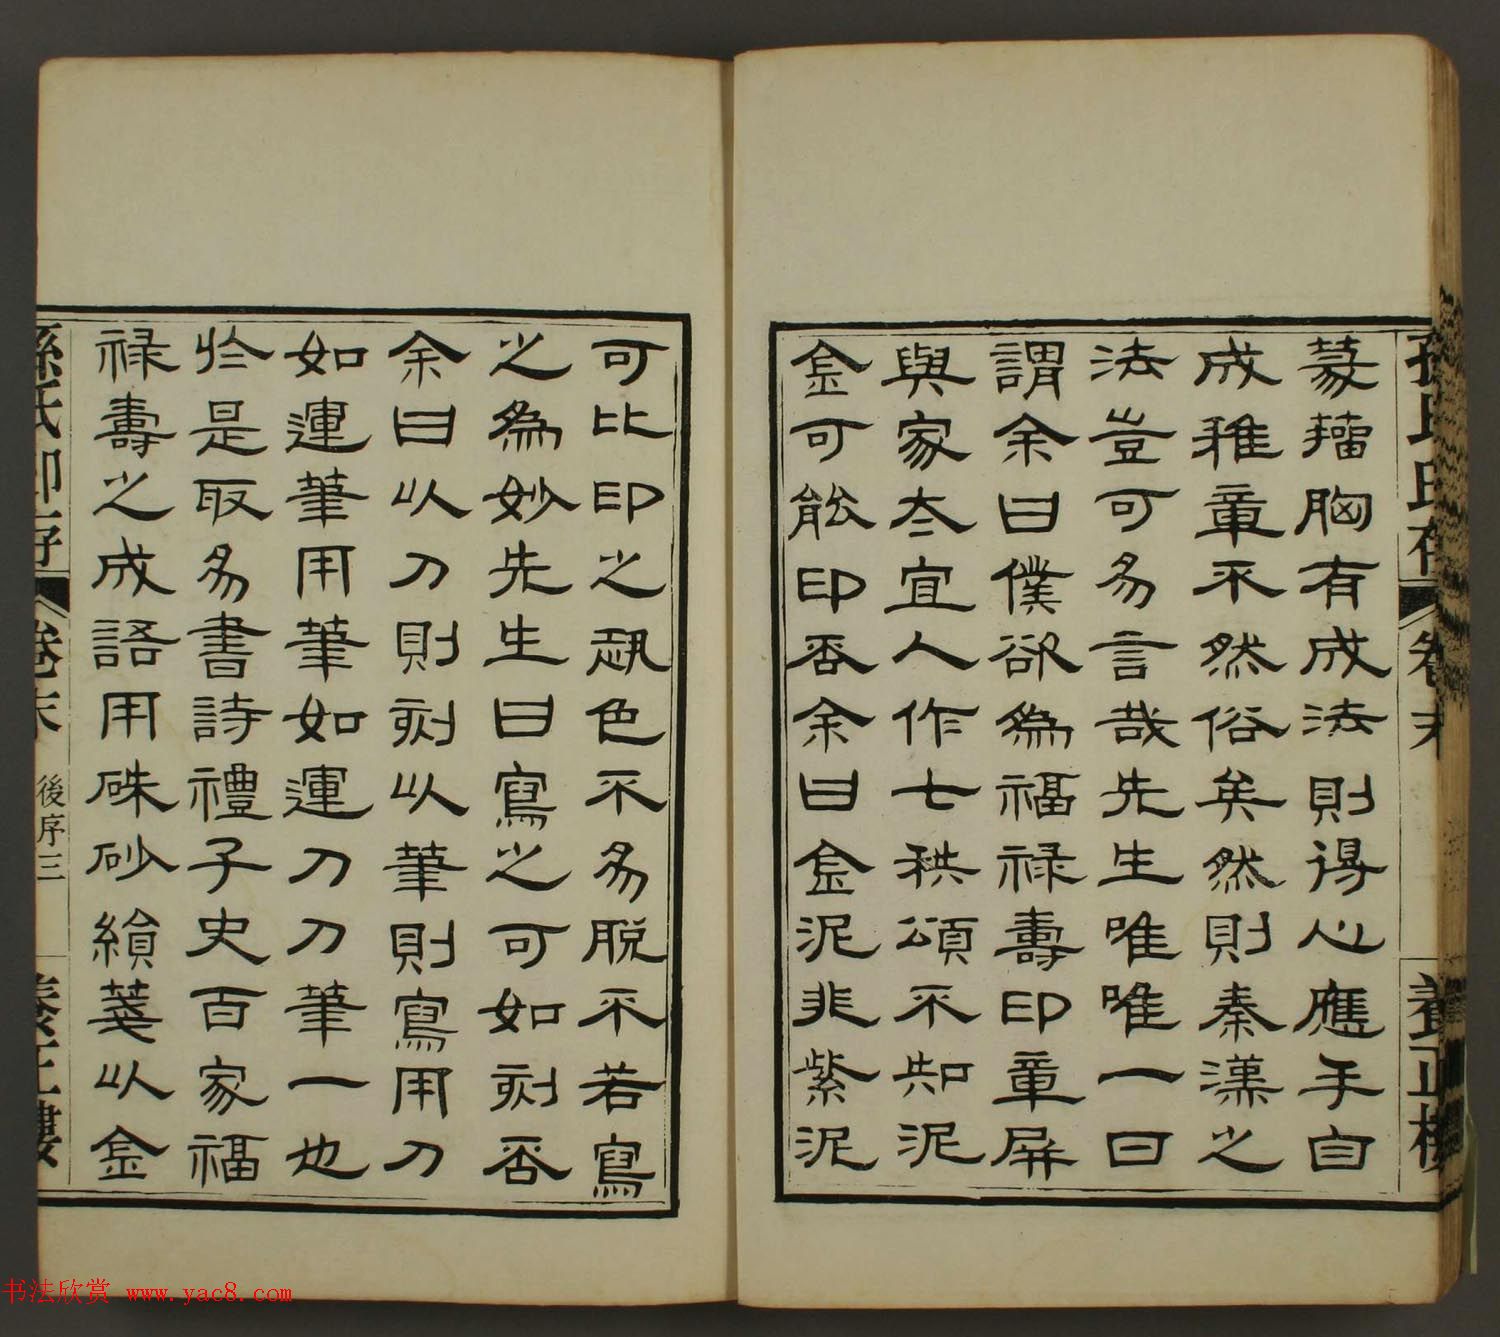 孫氏印存 卷末 養正樓
篆籀胸有成法則得心應手自
成稚章不然俗矣然則秦漢之
法豈可易言哉先生唯唯一日
謂余曰僕欲為福祿壽印章屏
與家太宜人作七秩頌不知泥
金可能印否余曰金泥非紫泥
可比印之色不易脫不若寫
之為妙先生曰寫之可如刻否
余曰以刀則刻以筆則寫用刀
如運筆用筆如運刀刀筆一也
於是取易書詩禮子史百家福
祿壽之成語用硃砂繢箋以金
孫氏印存 卷末 後序三 養正樓
书法欣赏 www.yac8.com